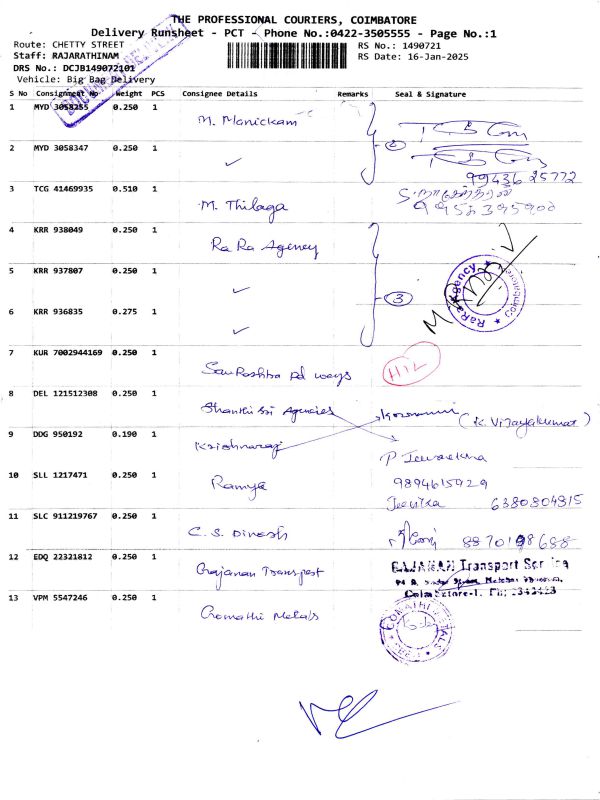 THE PROFESSIONAL COURIERS, COIMBATORE
Delivery Runsheet - PCT - Phone No.:0422-3505555 - Page No.:1
Route: CHETTY STREET RS No.: 1490721
Staff: RAJARATHINAM RS Date: 16-Jan-2025
DRS No.: DCJB149072101
Vehicle: Big Bag Delivery
S No Consignment No Weight PCS Consignee Details Remarks Seal & Signature
1 MYD 3058255 0.250 1 M. Manickam
2 MYD 3058347 0.250 1 ✓ 2
99436 25772
3 TCG 41469935 0.510 1 M. Thilaga
4 KRR 938049 0.250 1 Ra Ra Agency
5 KRR 937807 0.250 1 ✓ 3 RaRa Agency Coimbatore
6 KRR 936835 0.275 1 ✓
7 KUR 7002944169 0.250 1 HIL
8 DEL 121512308 0.250 1 Shanthi Sri Agencies (K. Vijayakumar)
9 DDG 950192 0.190 1
10 SLL 1217471 0.250 1 Ramya 9894615929
6380804815
11 SLC 911219767 0.250 1 C. S. Dinesh
12 EDQ 22321812 0.250 1 Gajanan Transport
13 VPM 5547246 0.250 1 Gomathi Metals GOMATHI METALS